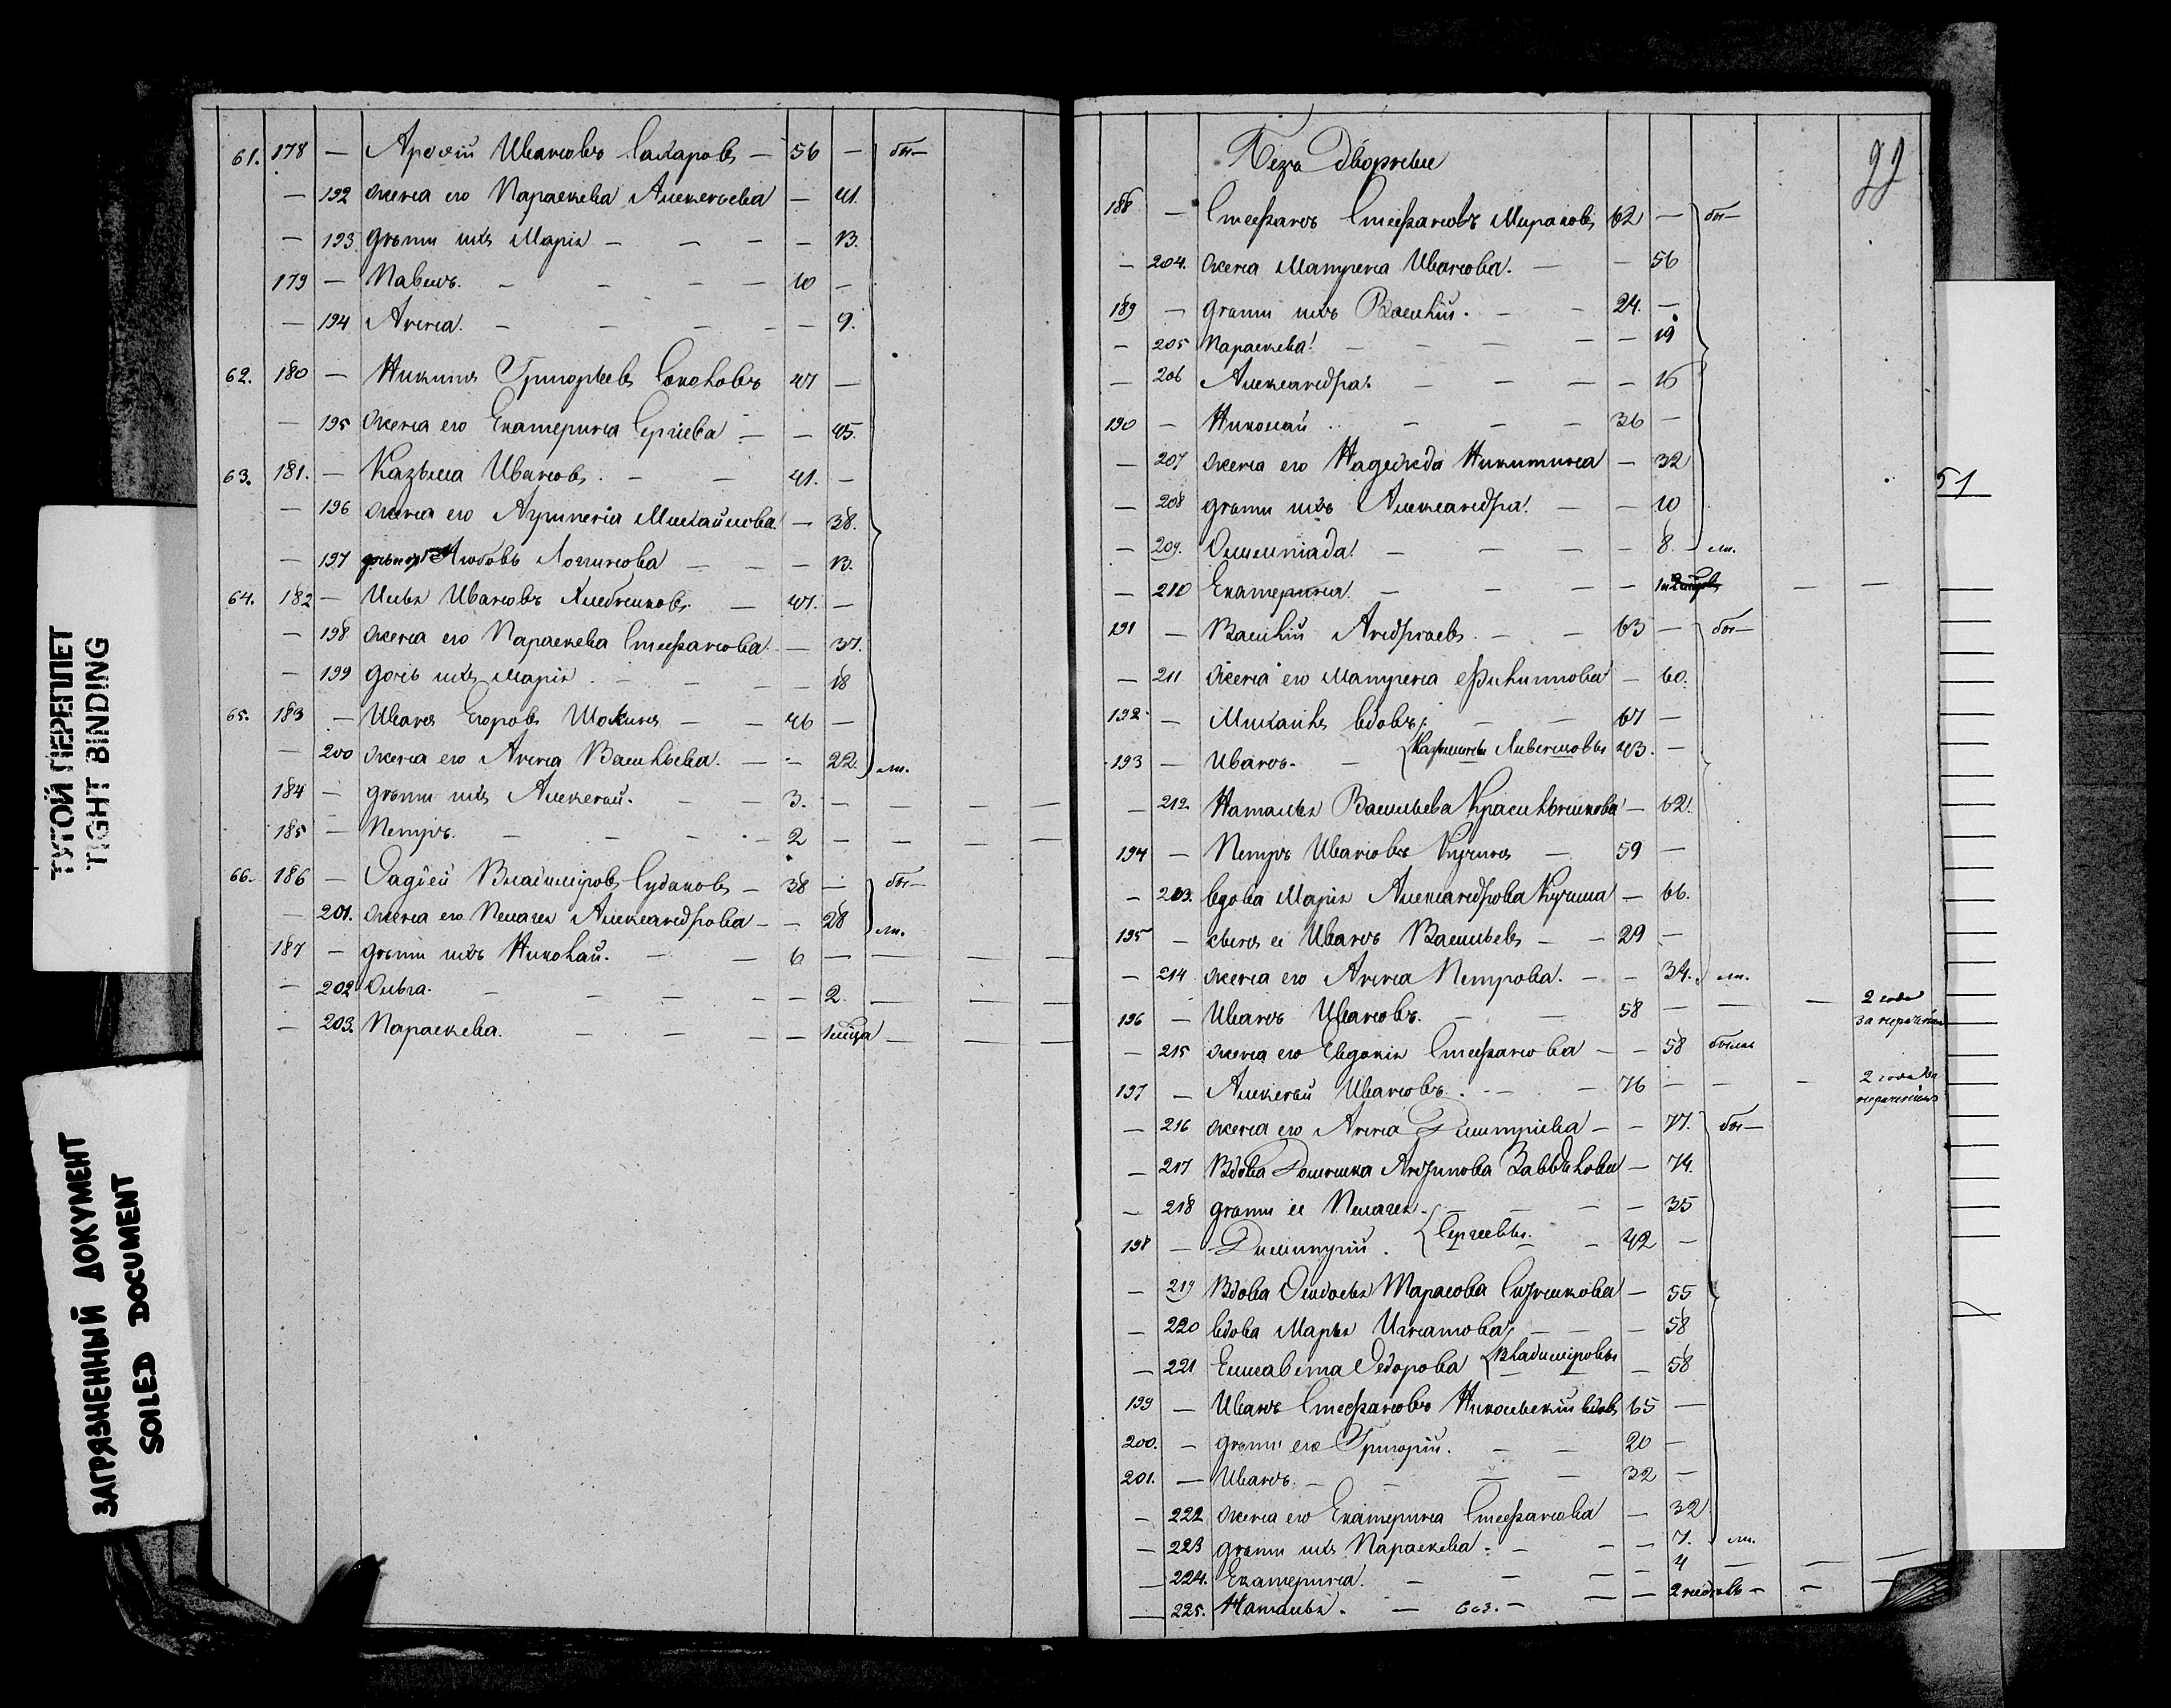 61. 178 — Арѳѳій Ивановъ Сахаровъ — 56 — бы—
— 192 жена его Параскева Алексѣева — 41.
— 193 дѣти ихъ Марія — — — — 13.
179 — Павелъ. — — — — 10 —
— 194 Анна. — — — — — 9.
62. 180 — Никита Григорьевъ Соколовъ 47 —
— 195 жена его Екатерина Сергіева — — 45.
63. 181. — Казьма Ивановъ. — — 41. —
— 196 жена его Агрипена Михайлова — 38.
— 197 Любовь Логинова — — — 13.
64. 182 — Илья Ивановъ Хлебниковъ — 47. —
— 198 жена его Параскева Стефанова. — 37.
— 199 дочь ихъ Марія. — — — — 18
65. 183 — Иванъ Егоровъ Шокинъ — — 46 —
— 200 жена его Анна Васильева. — — 22. ли.
184 — дѣти ихъ Алексѣй. — — 3. — — — —
185 — Петръ. — — — — 2 — — — —
66. 186 — Фадѣй Владиміровъ Судаковъ — 38 — бы—
— 201. жена его Пелагея Александрова — — 28 ли.
187 — дѣти ихъ Николай. — — 6 — — — —
— 202 Ольга. — — — — — 2. — — —
— 203. Параскева. — — — — 1 мѣсяца — — —
Безъ дворные
188 — Стефанъ Стефановъ Мираковъ 62 — бы—
— 204. жена Матрена Иванова. — — 56
189 — дѣти ихъ Василій. — — 24. —
— 205 Параскева. — — — — — 19
— 206 Александра. — — — — 16
190 — Николай — — — 36 —
— 207 жена его Надежда Никитина — 32
— 208 дѣти ихъ Александра. — — 10
— 209. Олимпіада. — — — — 8. ли.
— 210 Екатерина. — — — — — —
191 — Василій Андреевъ. — — 63 — бы—
— 211 жена его Матрена Филиппова — 60.
192 — Михаилъ вдовъ — — 67 —
193 — Иванъ. — 43. —
— 212. Наталья Васильева Красильникова — 62.
194 — Петръ Ивановъ Кузинъ — 59 —
— 213. вдова Марія Александрова — 66.
195 — сынъ ее Иванъ Васильевъ — — 29 —
— 214 жена его Анна Петрова. — — 34. ли.
196 — Иванъ Ивановъ. — — 58 — — — 2 года
— 215 жена его Евдокія Стефанова — — 58
197 — Алексѣй Ивановъ. — — 76 — — — 2 года
— 216 жена его Анна Димитріева — — 77. бы—
— 217 Вдова Домника — 74.
— 218 дѣти ее Пелагея. — — — 35
198 — Димитрій. Сергеевы. — 42 —
— 219 Вдова Ѳедосья Тарасова — 55
— 220 вдова Марья Игнатова — — — 58
— 221 Елисавета Ѳедорова Владиміровы — 58
199 — Иванъ Стефановъ Никольскій вдовъ 65 —
200. — дѣти его Григорій. — — 20 —
201. — Иванъ. — — — 32 —
— 222 жена его Екатерина Стефанова — 32
— 223 дѣти ихъ Параскева. — — — 7. ли.
— 224. Екатерина. — — — — 4 — — —
— 225. Наталья. — — — — 2 недѣль — — —
51
ТУГОЙ ПЕРЕПЛЕТ
TIGHT BINDING
ЗАГРЯЗНЕННЫЙ ДОКУМЕНТ
SOILED DOCUMENT